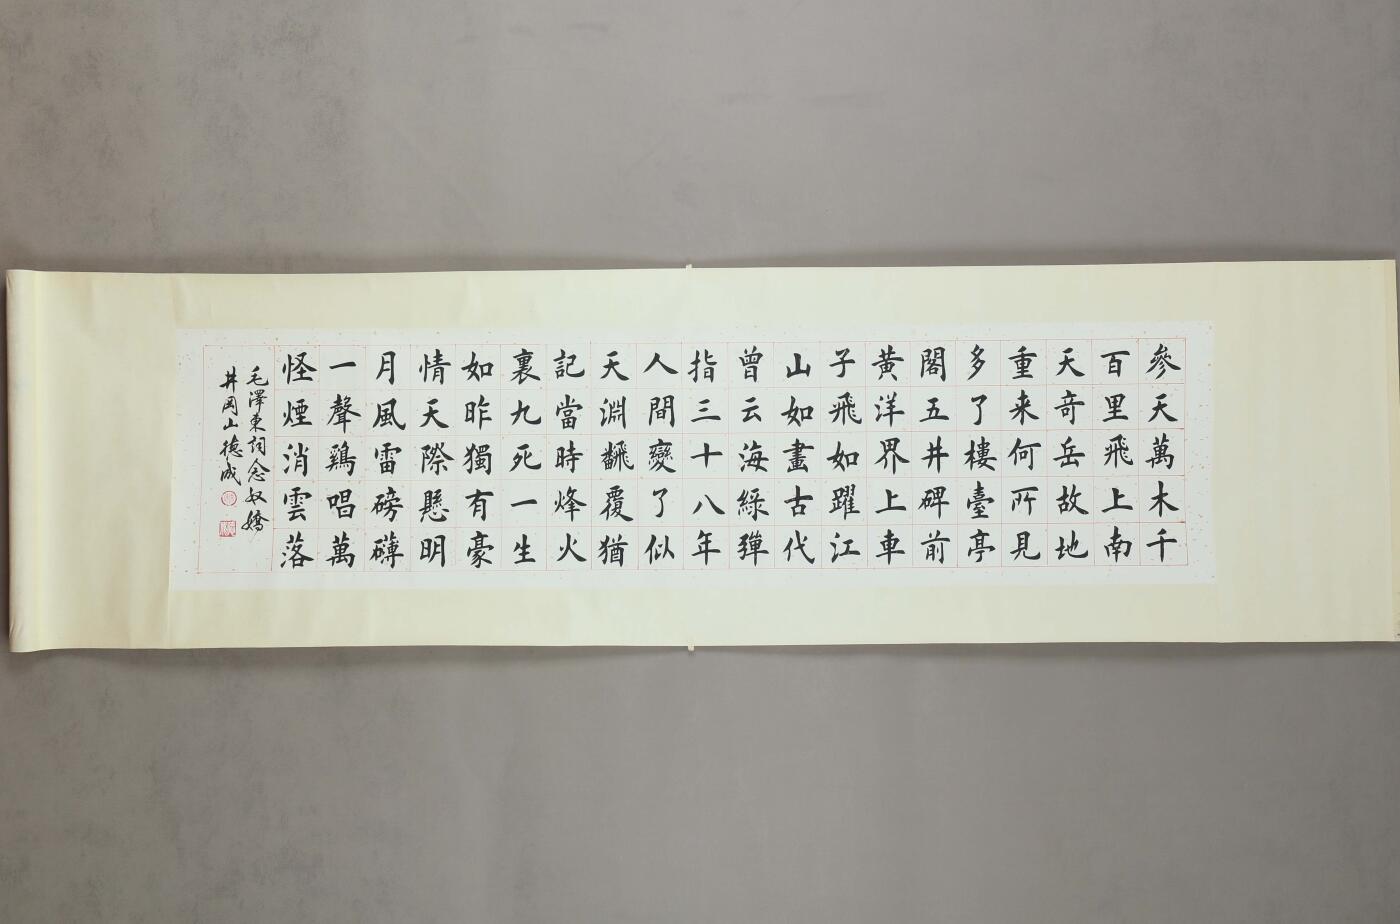 參天萬木千
百里飛上南
天奇岳故地
重来何所見
多了樓臺亭
閣五井碑前
黃洋界上車
子飛如躍江
山如畫古代
曾云海綠彈
指三十八年
人間變了似
天淵飜覆猶
記當時烽火
裏九死一生
如昨獨有豪
情天際懸明
月風雷磅礴
一聲鶏唱萬
怪煙消雲落
毛澤東詞念奴嬌
井岡山德成